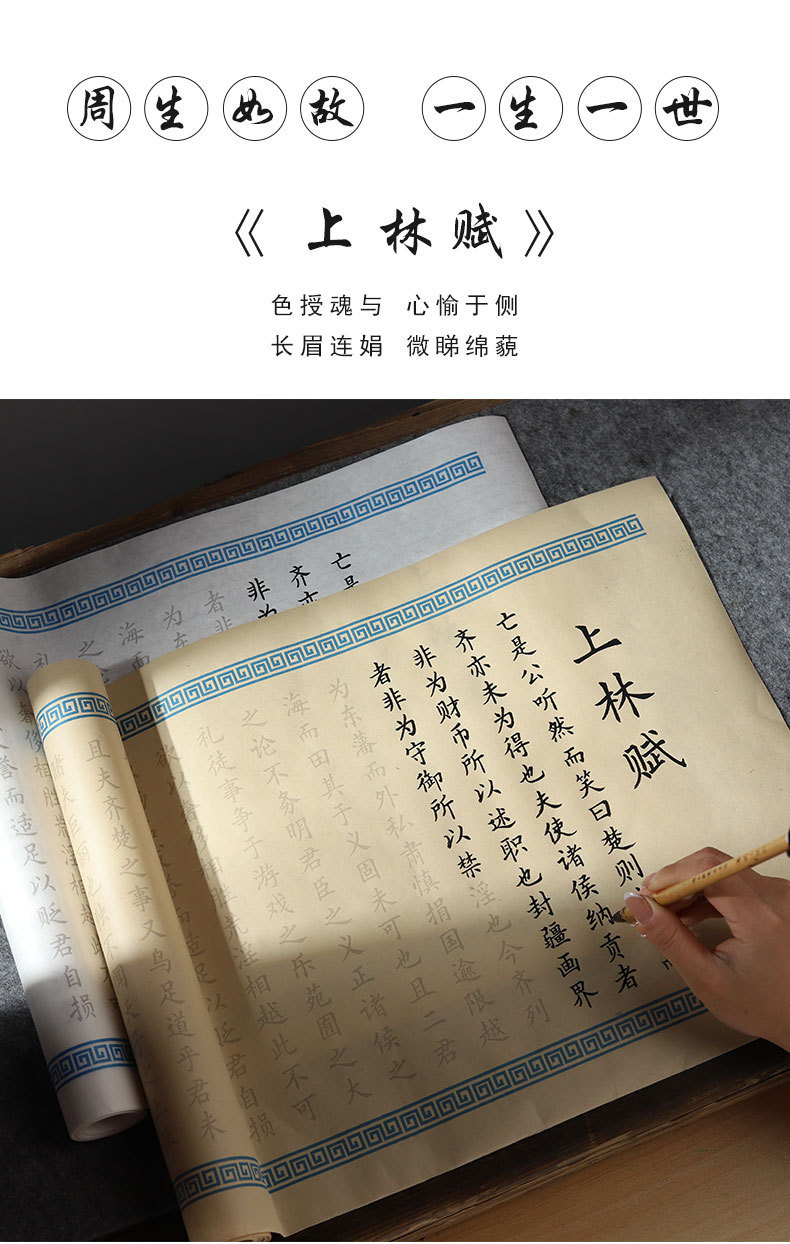 周生如故 一生一世
《上林赋》
色授魂与 心愉于侧
长眉连娟 微睇绵藐
上林赋
亡是公听然而笑曰楚则
齐亦未为得也夫使诸侯纳贡者
非为财币所以述职也封疆画界
者非为守御所以禁淫也今齐列
为东藩而外私肃慎捐国逾限越
海而田其于义固未可也且二君
之论不务明君臣之义正诸侯之
礼徒事争于游戏之乐苑囿之大
欲以奢侈相胜荒淫相越此不可
以贬君自损
且夫齐楚之事又乌足道乎君未
亡是
齐亦
非为
者非
为东
海而
之论
礼
欲以奢侈相胜荒淫相越此不
誉而适足以贬君自损